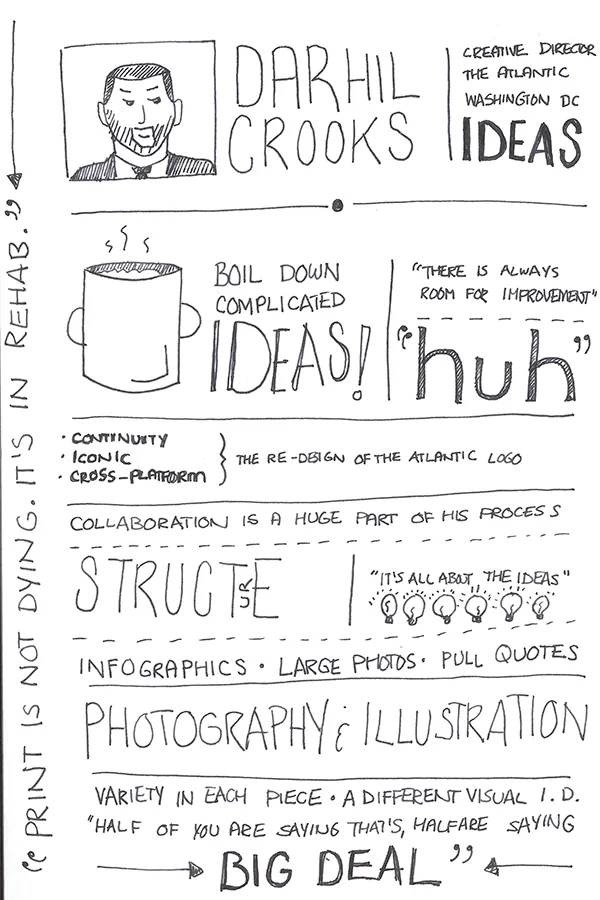 DARHIL
CROOKS
CREATIVE DIRECTOR
THE ATLANTIC
WASHINGTON DC
IDEAS
BOIL DOWN
COMPLICATED
IDEAS!
"THERE IS ALWAYS
ROOM FOR IMPROVEMENT"
"huh"
• CONTINUITY
• ICONIC
• CROSS-PLATFORM
THE RE-DESIGN OF THE ATLANTIC LOGO
COLLABORATION IS A HUGE PART OF HIS PROCESS
STRUCTURE
"IT'S ALL ABOUT THE IDEAS"
INFOGRAPHICS • LARGE PHOTOS • PULL QUOTES
PHOTOGRAPHY & ILLUSTRATION
VARIETY IN EACH PIECE • A DIFFERENT VISUAL I.D.
"HALF OF YOU ARE SAYING THAT'S, HALF ARE SAYING
BIG DEAL"
"PRINT IS NOT DYING. IT'S IN REHAB."